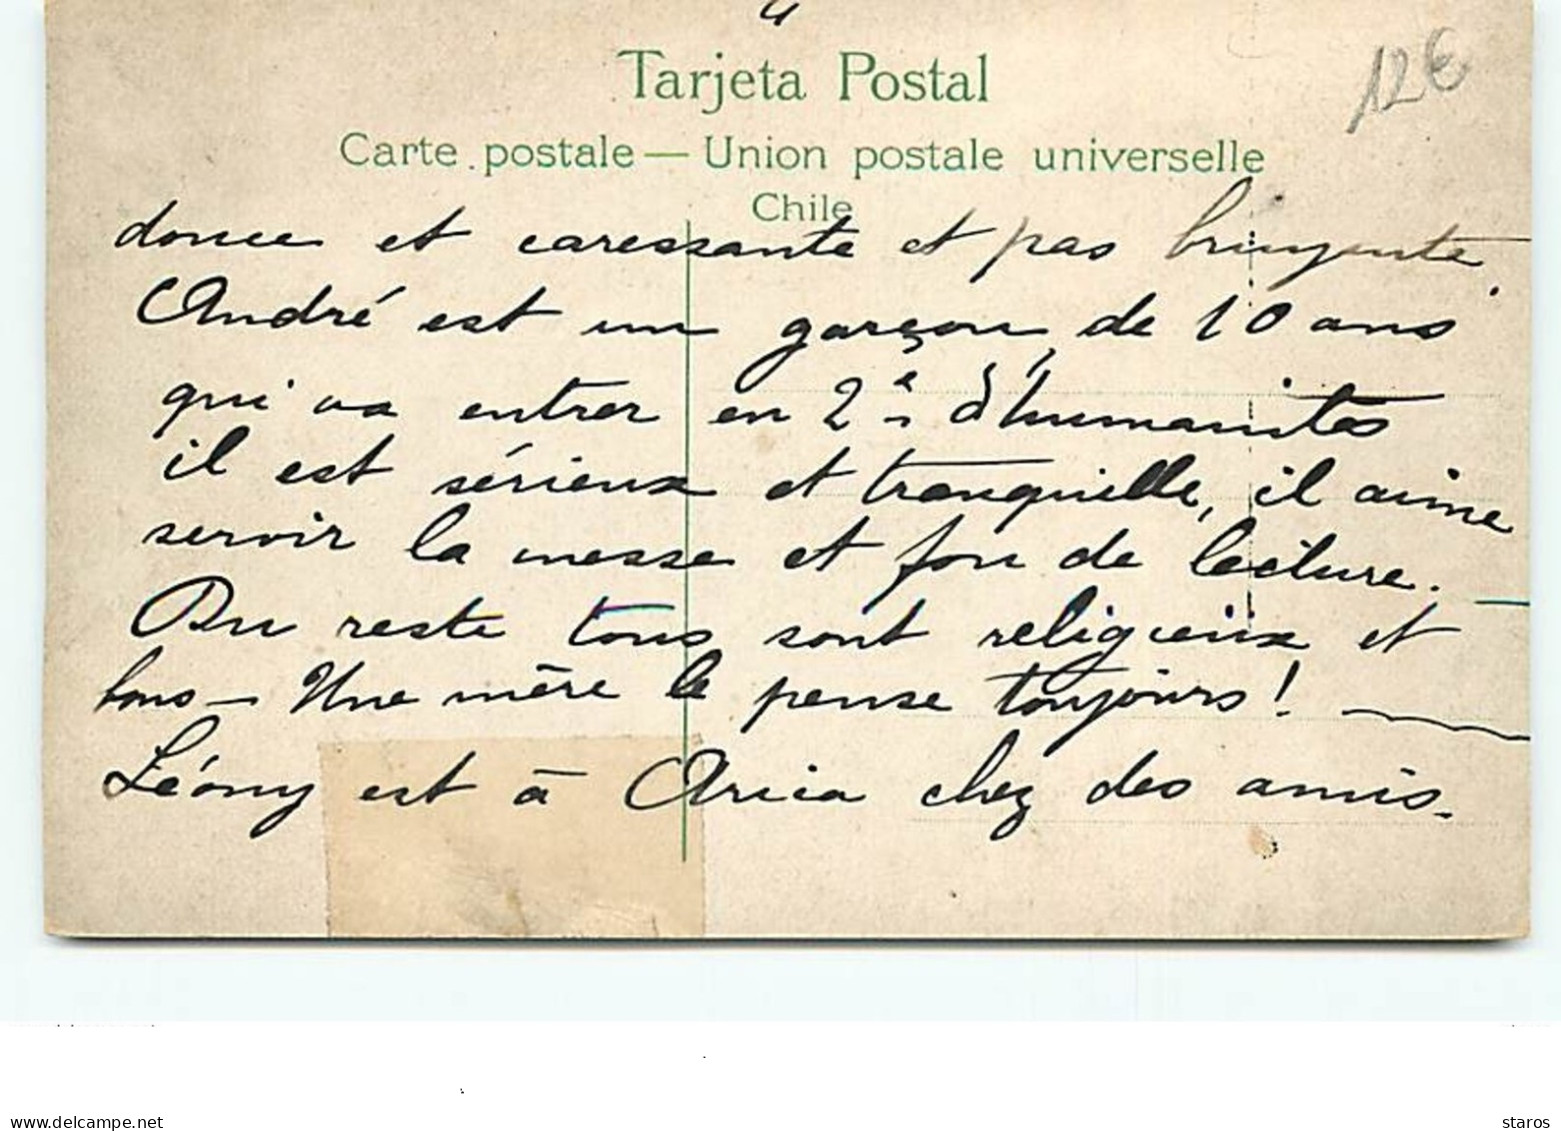 4
12€
Tarjeta Postal
Carte postale — Union postale universelle
Chile
douce et caressante et pas bruyante.
André est un garçon, de 10 ans
qui va entrer en 2e d'humanités
il est sérieux et tranquille, il aime
servir la messe et fou de lecture. —
Du reste tous sont religieux et
bons — Une mère le pense toujours !
Léony est à Arica chez des amis.
www.delcampe.net
staros